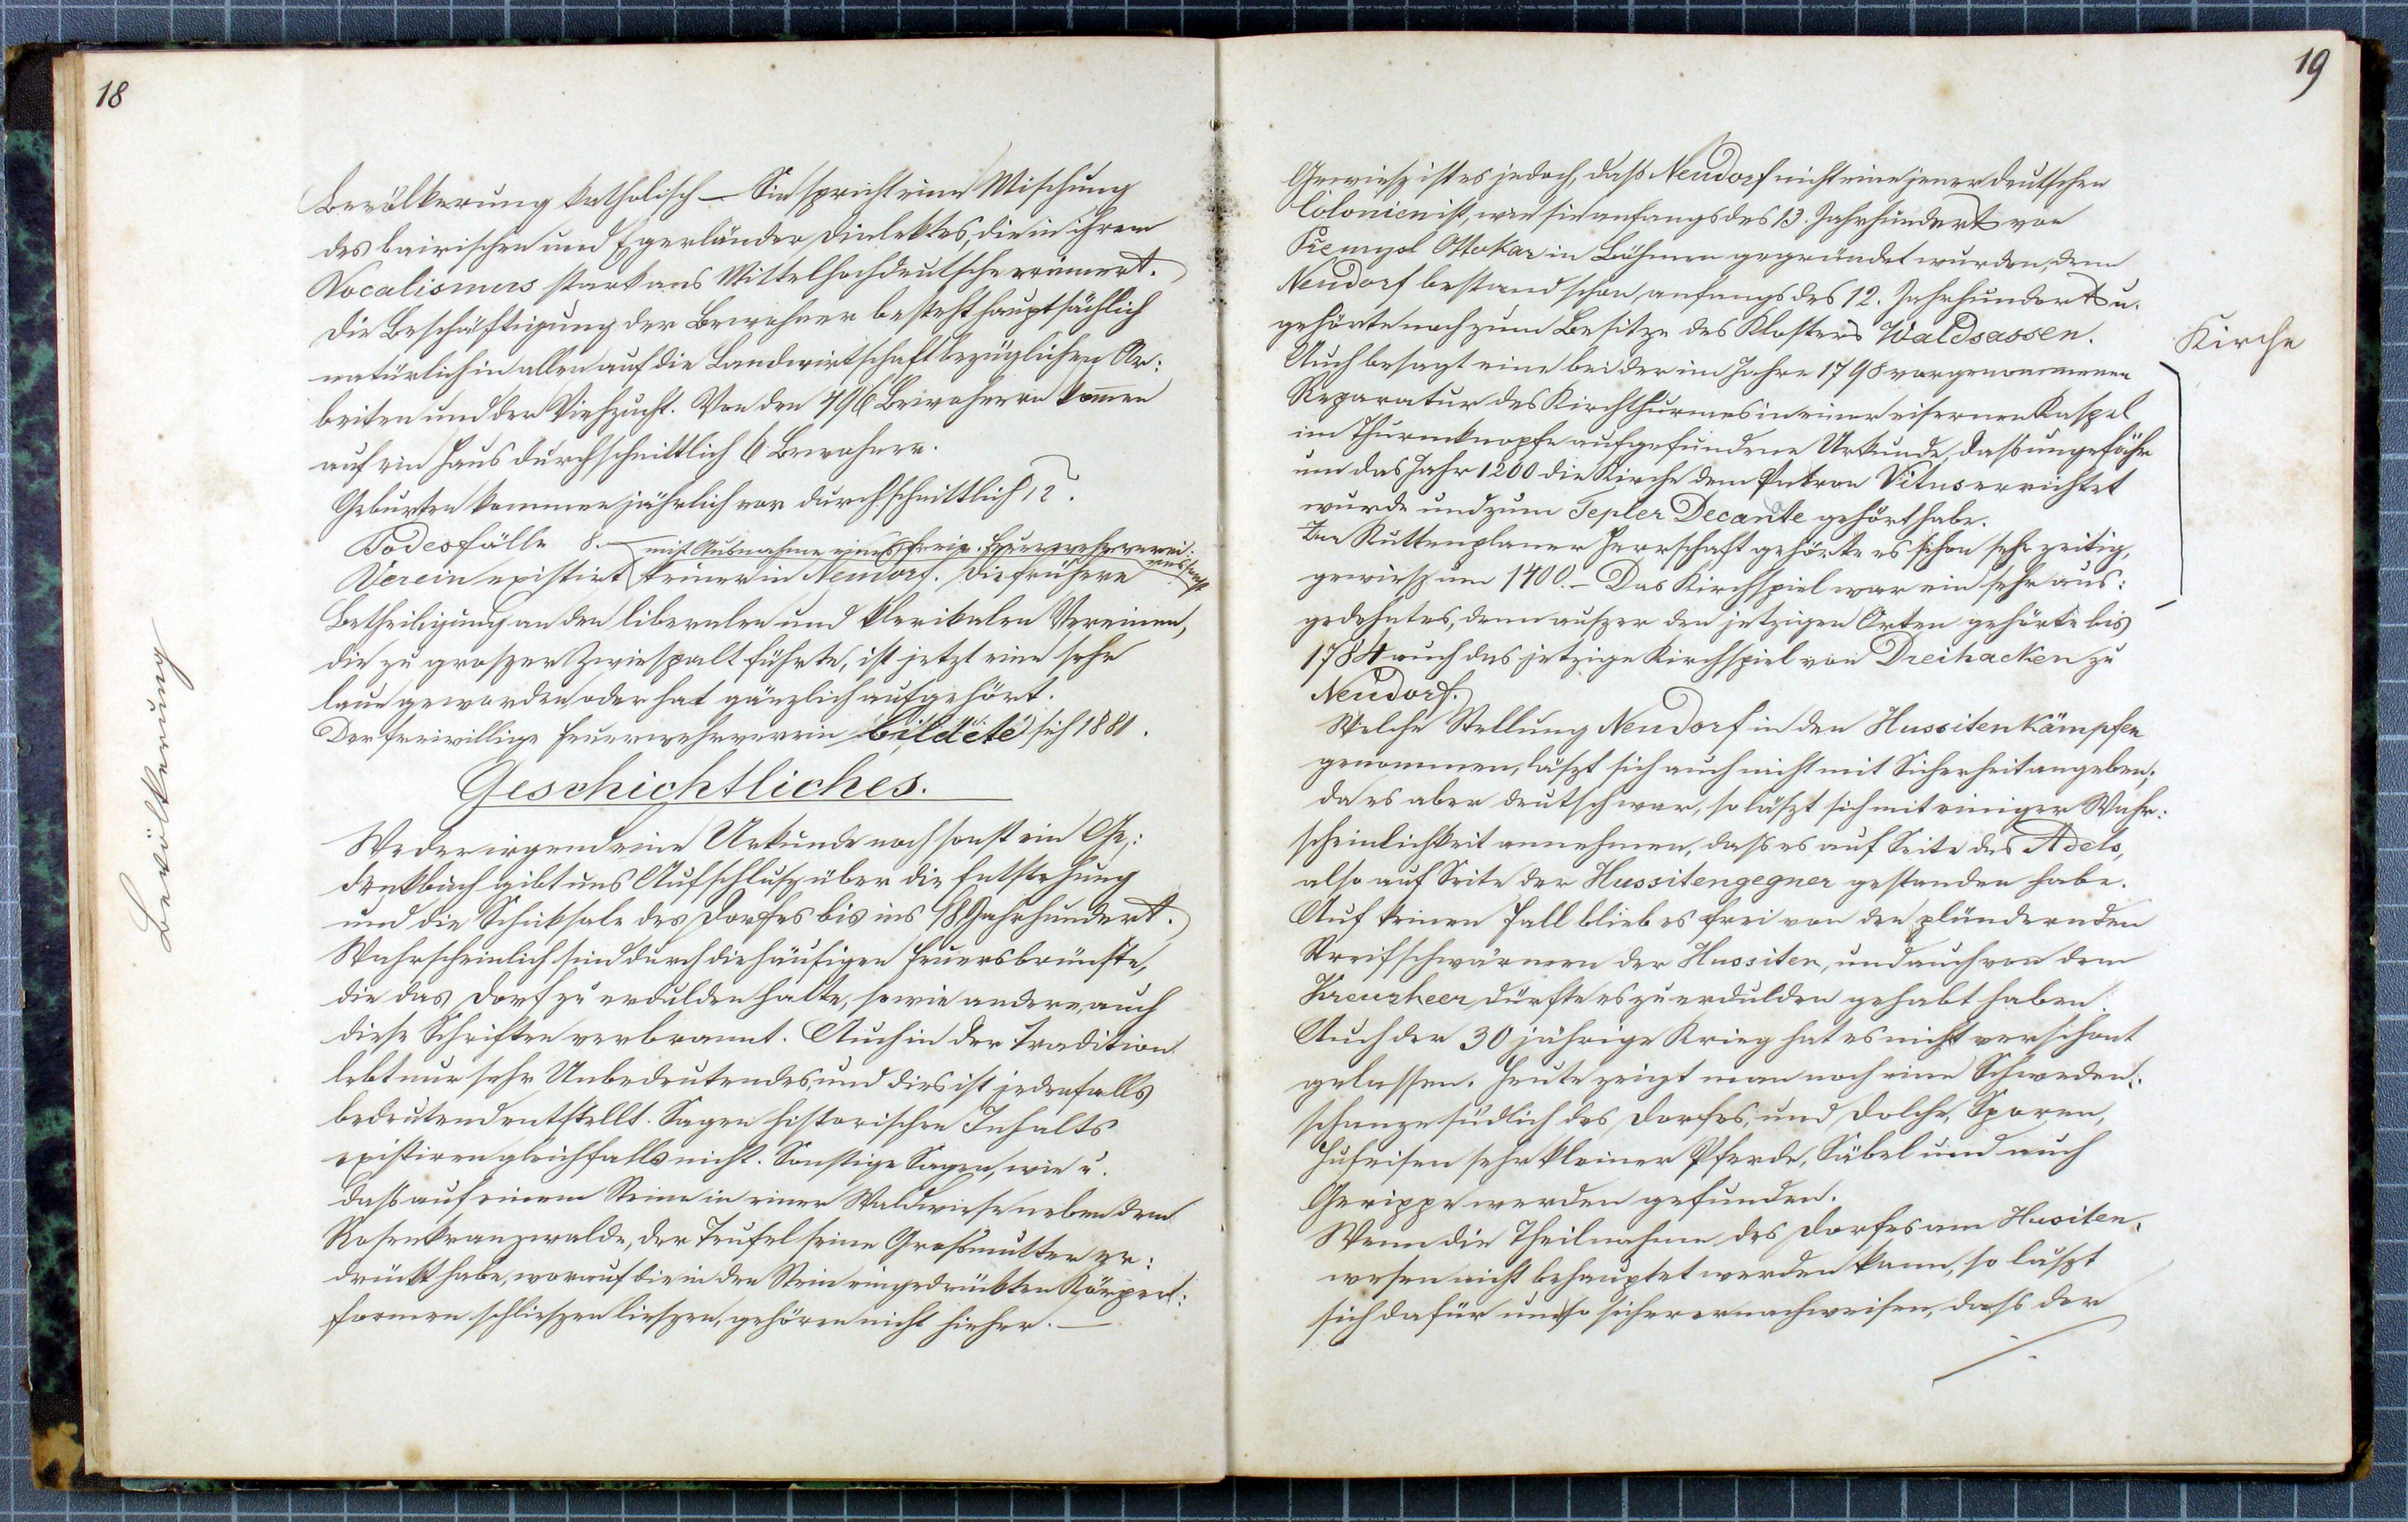 18
Bevölkerung katholisch – Sie spricht eine Mischung
des bairischen und Egerländer Dialektes, die in ihrem
Vocalismus stark ans Mittelhochdeutsche erinnert.
Die Beschäftigung der Bewohner besteht hauptsächlich
natürlich in allen auf die Landwirtschaft bezüglichen Ar:
beiten und der Viehzucht. Von den 496 Bewohnern kommen
auf ein Haus durchschnittlich 6 Bewohner.
Geburten kommen jährlich vor durchschnittlich 12.
Todesfälle 8. – mit Ausnahme eines freiw. Feuerwehrverei:
nes sonst
Verein existirt keiner in Neudorf. Die frühere
Betheiligung an den liberalen und klerikalen Vereinen,
die zu groszer Zwiespalt führte, ist jetzt eine sehr
laue geworden oder hat gänzlich aufgehört.
Der freiwillige Feuerwehrverein bildete sich 1881.
Bevölkerung
Geschichtliches.
Weder irgend eine Urkunde noch sonst ein Ge:
denkbuch gibt uns Aufschlusz über die Entstehung
und die Schicksale des Dorfes bis ins 18 Jahrhundert.
Wahrscheinlich sind durch die häufigen Feuersbrünste,
die das Dorf zu erdulden hatte, sowie andere, auch
diese Schriften verbrannt. Auch in der Tradition
lebt nur sehr Unbedeutendes, und dies ist jedenfalls
bedeutend entstellt. Sagen historischen Inhalts
existiren gleichfalls nicht. Sonstige Sagen, wie
dass auf einem Steine in einer Waldwiese neben dem
Rosenkranzwalde, der Teufel seine Grossmutter er:
drückt habe, worauf die in den Stein eingedrückten Körper:
formen schlieszen lieszen, gehören nicht hieher. –
19
Gewiesz ist es jedoch, dass Neudorf nicht eine jener deutschen
Colonien ist, wie sie anfangs des 13. Jahrhundert von
Přemysl Ottokar in Böhmen gegründet wurden, denn
Neudorf bestand schon anfangs des 12. Jahrhundert u.
gehörte noch zum Besitze des Klosters Waldsassen.
Kirche
Auch besagt eine bei der im Jahre 1798 vorgenommenen
Reparatur des Kirchthurmes in einer eisernen Kapsel
im Thurmknopfe aufgefundene Urkunde, dass ungefähr
um das Jahr 1200 die Kirche dem Patron Vitus errichtet
wurde und zum Tepler Decanate gehört habe.
Zur Kuttenplaner Herrschaft gehörte es schon sehr zeitig,
gewiesz um 1400. – Das Kirchspiel war ein sehr aus:
gedehntes, denn auszer den jetzigen Orten gehörte bis
1784 auch das jetzige Kirchspiel von Dreihacken zu
Neudorf.
Welche Stellung Neudorf in den Hussitenkämpfen
genommen, läszt sich auch nicht mit Sicherheit angeben;
da es aber deutsch war, so läszt sich mit einiger Wahr:
scheinlichkeit annehmen, dass es auf Seite des Adels,
also auf Seite der Hussitengegner gestanden habe.
Auf keinen Fall blieb es frei von den plündernden
Streifschwärmen der Hussiten, und auch von dem
Kreuzheer dürfte es zu erdulden gehabt haben.
Auch der 30 jährige Krieg hat es nicht verschont
gelassen. Heute zeigt man noch eine Schweden:
schanze südlich des Dorfes, und Dolche, Sporen,
Hufeisen sehr kleiner Pferde, Säbel und auch
Gerippe werden gefunden.
Wenn die Theilnahme des Dorfes am Husiten:
wesen nicht behauptet werden kann, so läszt
sich dafür umso sicherer nachweisen, dass der